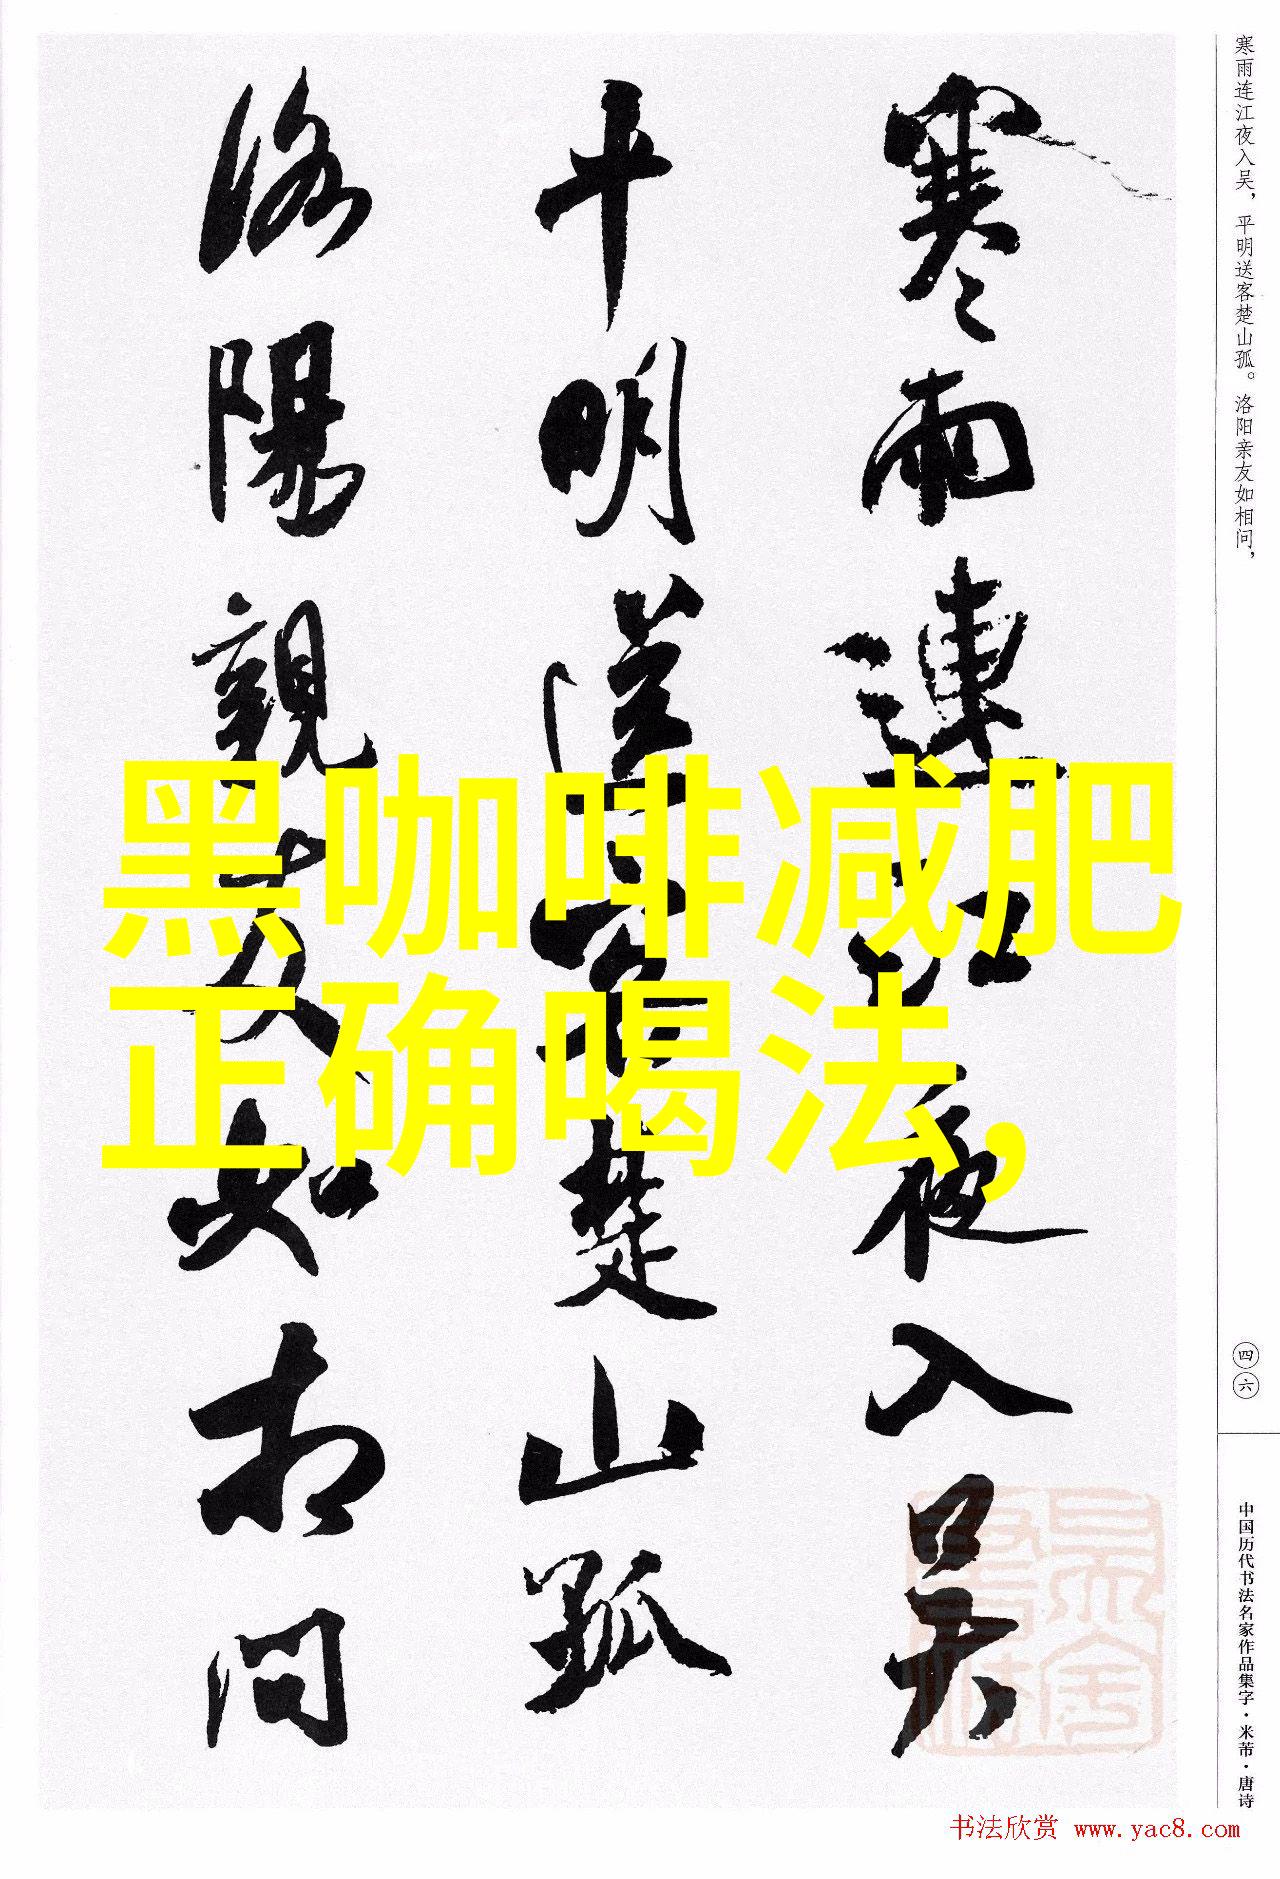 寒雨連江夜入吴
平明送客楚山孤
洛陽親友如相问
黑咖啡减肥
正确喝法,
寒雨连江夜入吴，平明送客楚山孤。洛阳亲友如相问，
四六
中国历代书法名家作品集字·米芾·唐诗
书法欣赏 www.yac8.com